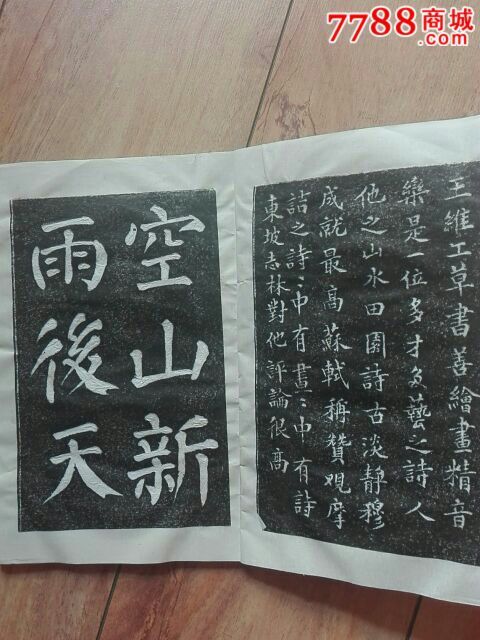 7788商城
.com
王維工草書善繪畫精音
樂是一位多才多藝之詩人
他之山水田園詩古淡靜穆
成就最高蘇軾稱贊觀摩
詰之詩:中有畫:中有詩
東坡志林對他評論很高
空山新
雨後天